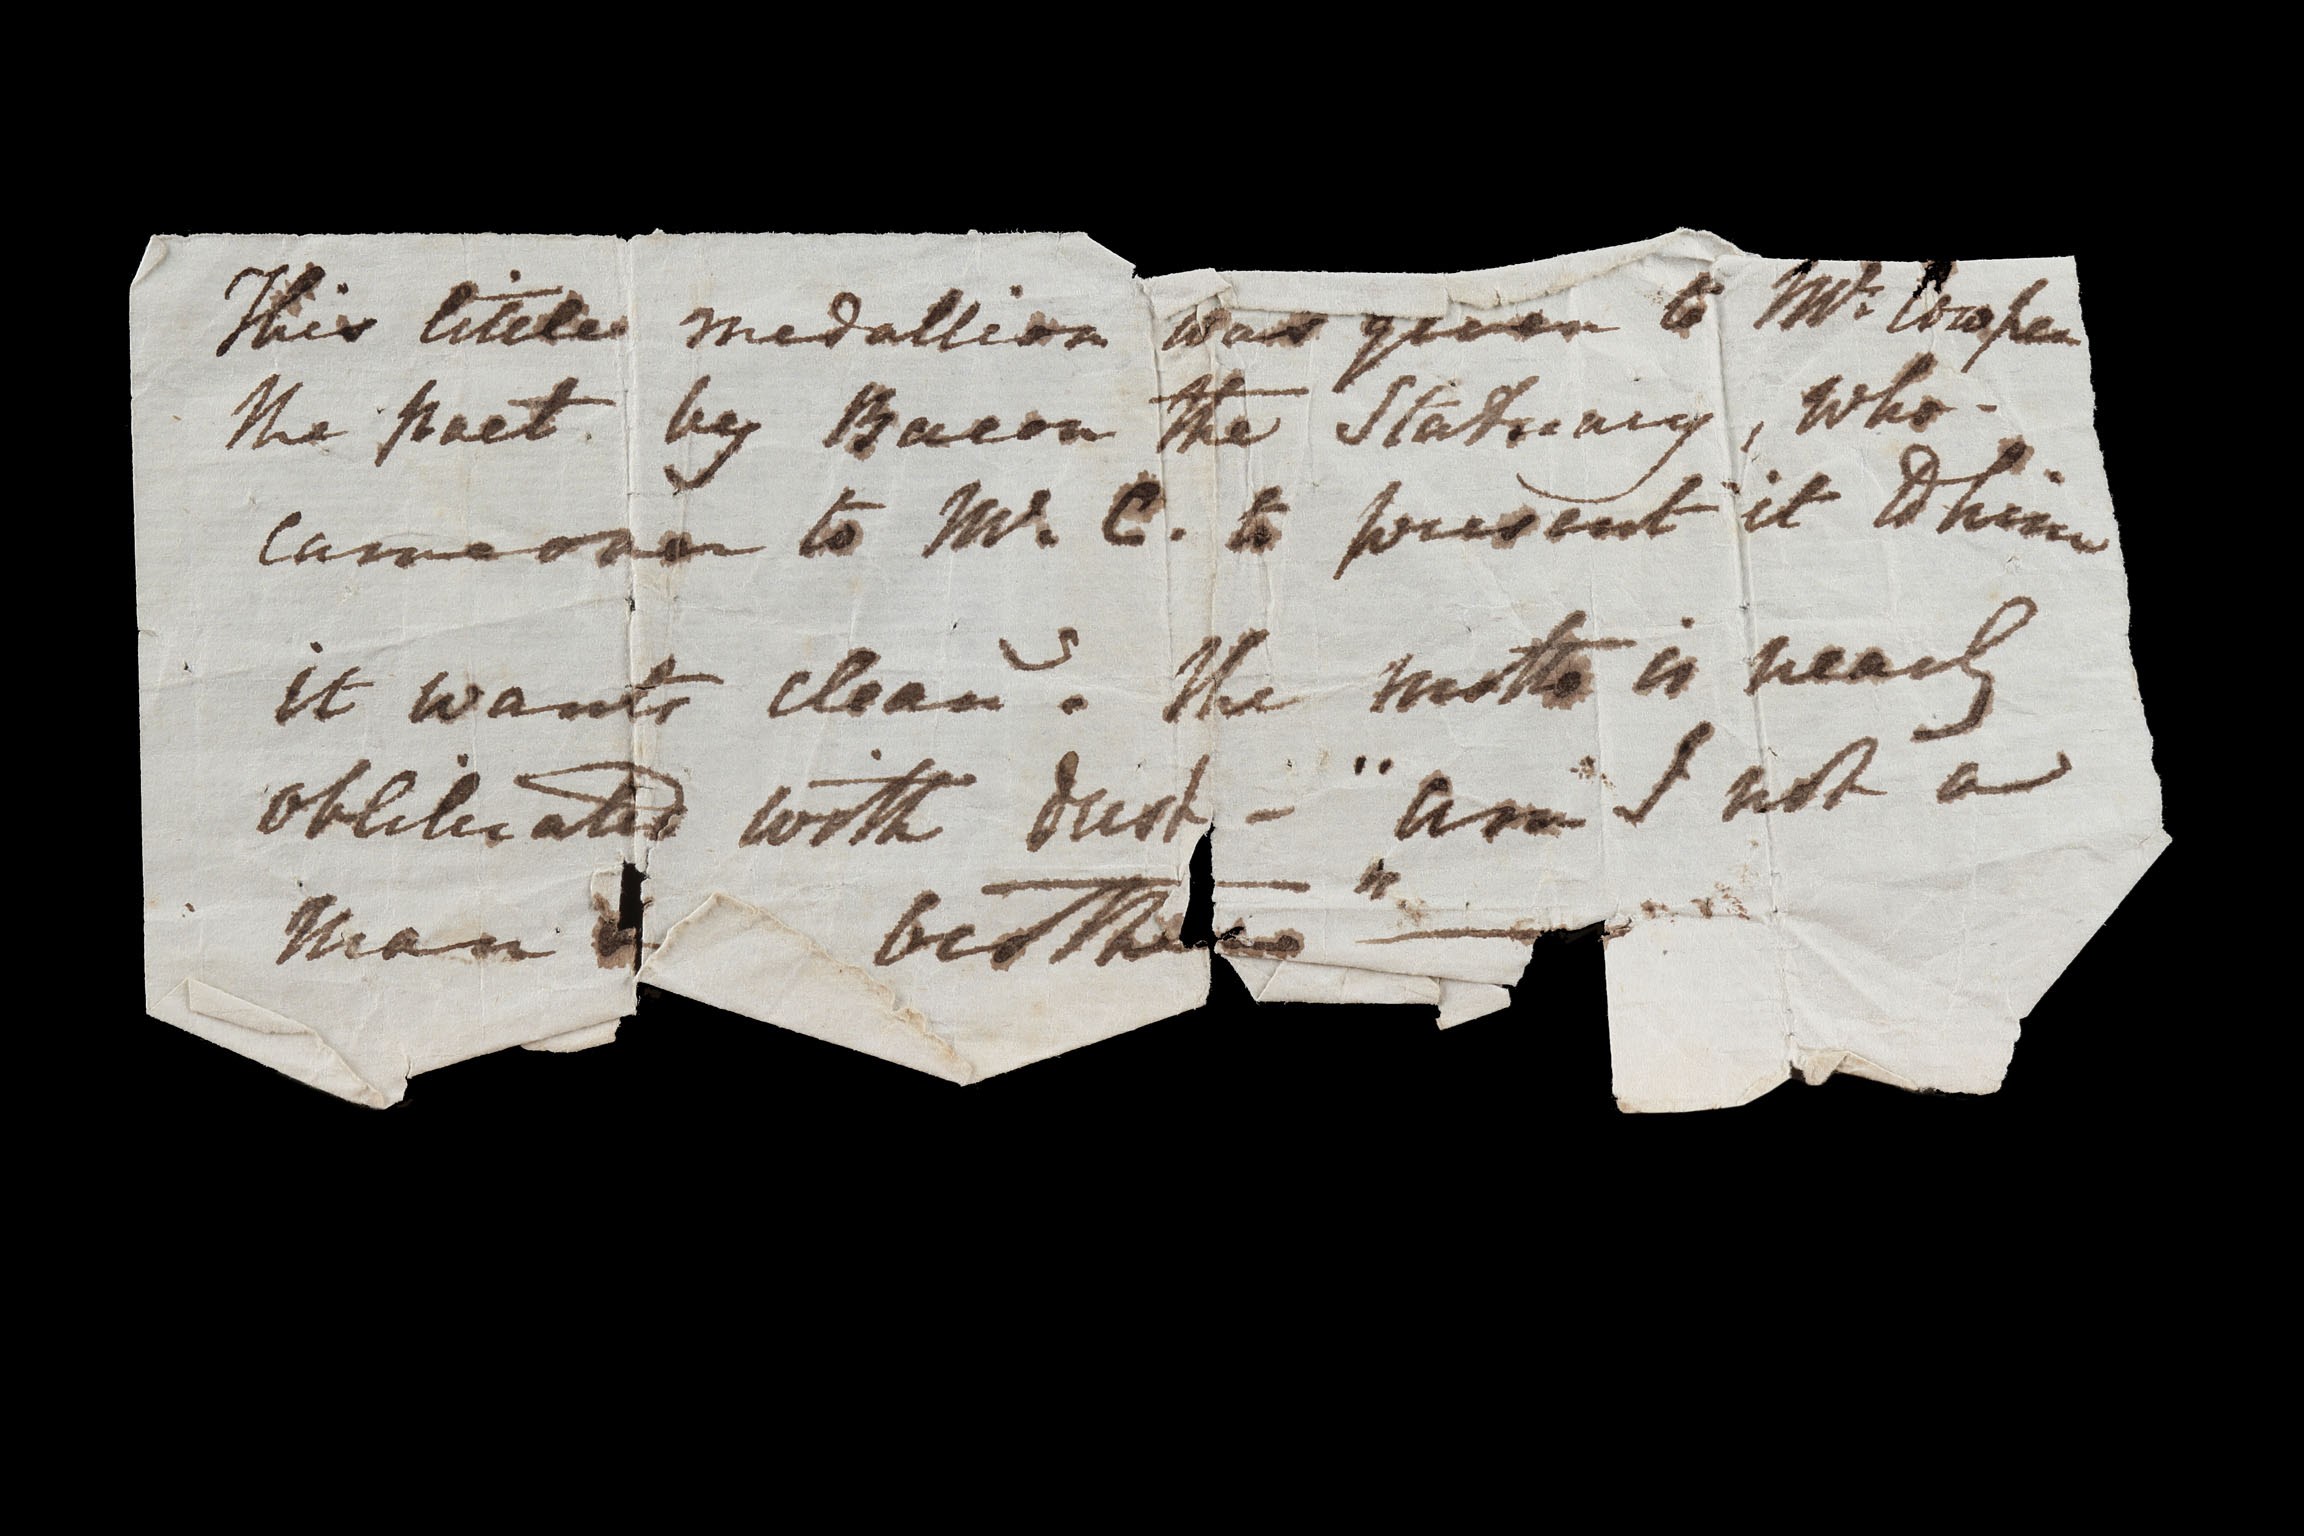 This little medallion was given to Mr. Cowper
the poet by Bacon the Statuary, who -
came over to Mr. C. to present it to him
it wants cleang. the motto is nearly
obliterated with dust - "am I not a
man brother" —